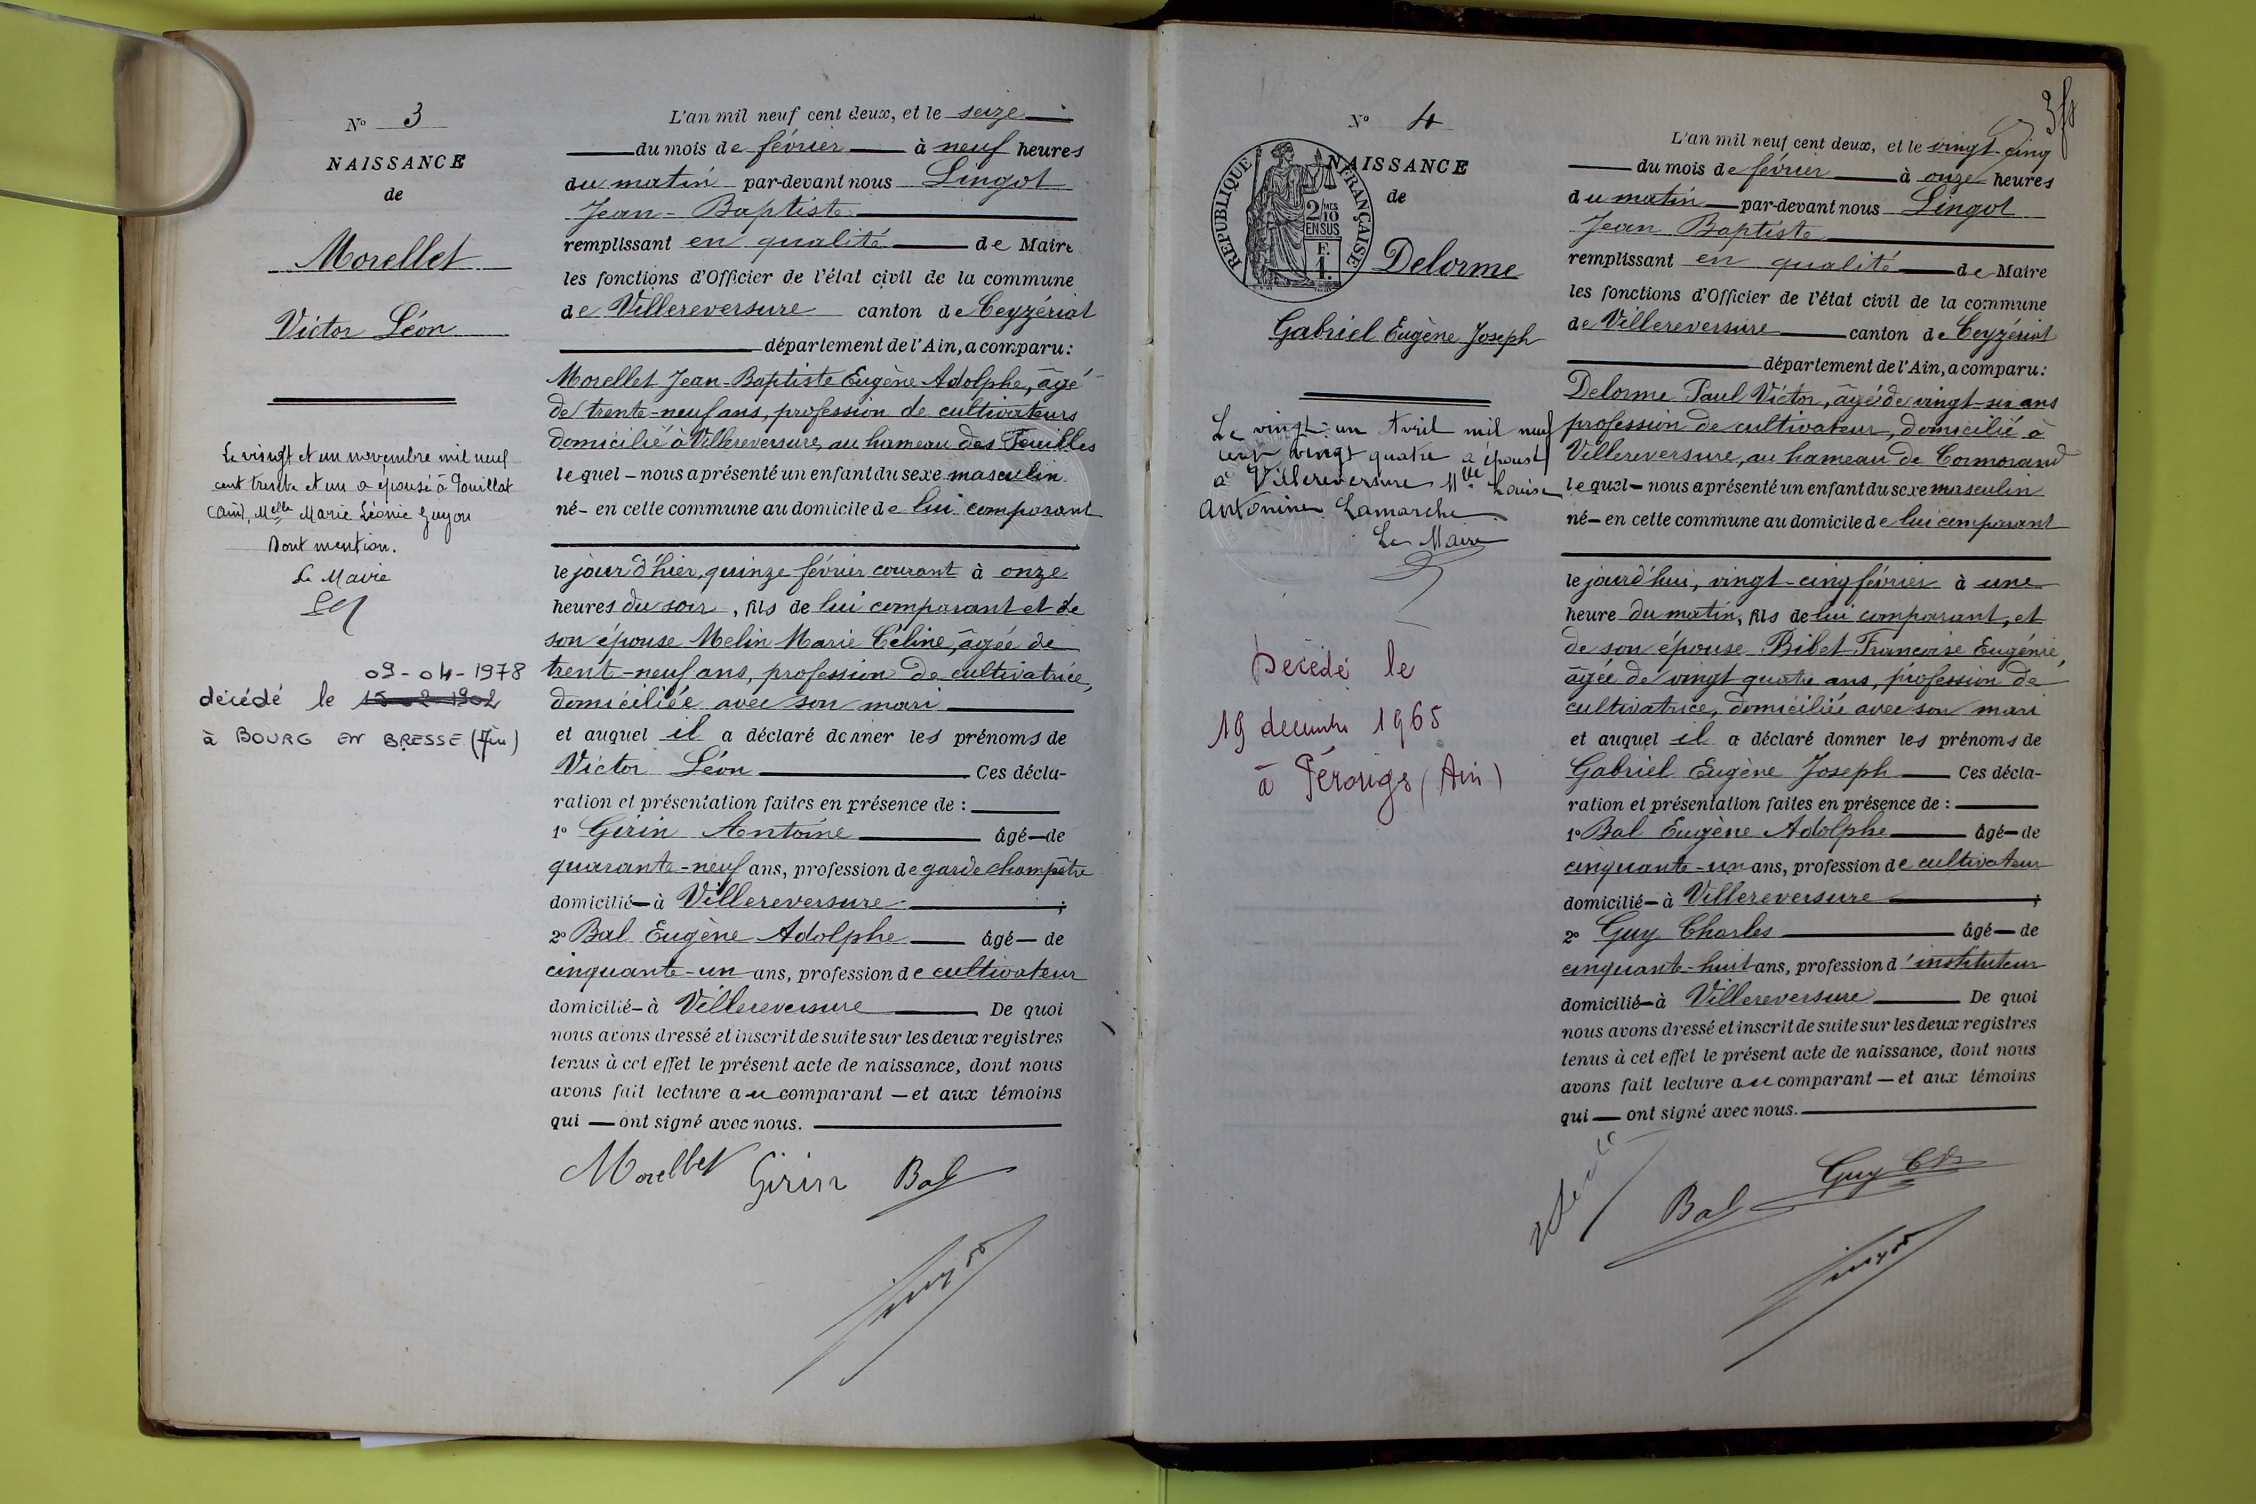 N° 3
NAISSANCE
de
Morellet
Victor Léon
Le vingt et un novembre mil neuf
cent trente et un a épousé à Pouillat
(Ain), Melle Marie Léonie Guyon
Dont mention.
Le Maire
09-04-1978
décédé le 15-02-1902
à BOURG EN BRESSE (Ain)
L'an mil neuf cent deux, et le seize
du mois de février à neuf heures
du matin par-devant nous Lingot
Jean-Baptiste
remplissant en qualité de Maire
les fonctions d'Officier de l'état civil de la commune
de Villereversure canton de Ceyzériat
département de l'Ain, a comparu:
Morellet Jean-Baptiste Eugène Adolphe, âgé
de trente-neuf ans, profession de cultivateurs
domicilié à Villereversure, au hameau des Feuilles
lequel - nous a présenté un enfant du sexe masculin
né - en cette commune au domicile de lui comparant
le jour d'hier, quinze février courant à onze
heures du soir, fils de lui comparant et de
son épouse Melin Marie Céline, âgée de
trent-neuf ans, profession de cultivatrice,
domiciliée avec son mari
et auquel il a déclaré donner les prénoms de
Victor Léon Ces décla-
ration et présentation faites en présence de :
1° Girin Antoine âgé — de
quarante-neuf ans, profession de garde champêtre
domicilié — à Villereversure ;
2° Bal Eugène Adolphe âgé — de
cinquante-un ans, profession de cultivateur
domicilié - à Villereversure De quoi
nous avons dressé et inscrit de suite sur les deux registres
tenus à cet effet le présent acte de naissance, dont nous
avons fait lecture au comparant — et aux témoins
qui — ont signé avec nous.
Morellet Girin Bal
3
N° 4
NAISSANCE
de
REPUBLIQUE FRANÇAISE
2/10 MES
EN SUS
F.
1.
Delorme
Gabriel Eugène Joseph
Le vingt-un Avril mil neuf
cent vingt quatre a épousé
à Villereversure Mlle Louise
Antonine Lamarche
Le Maire
Décédé le
19 décembre 1965
à Pérouges (Ain)
L'an mil neuf cent deux, et le vingt-cinq
du mois de février à onze heures
du matin par-devant nous Lingot
Jean Baptiste
remplissant en qualité de Maire
les fonctions d'Officier de l'état civil de la commune
de Villereversure canton de Ceyzériat
département de l'Ain, a comparu:
Delorme Paul Victor, âgé de vingt-six ans
profession de cultivateur, domicilié à
Villereversure, au hameau de Cormorand
lequel — nous a présenté un enfant du sexe masculin
né — en cette commune au domicile de lui comparant
le jourd'hui, vingt-cinq février à une
heure du matin, fils de lui comparant, et
de son épouse Bibet Françoise Eugénie,
âgée de vingt quatre ans, profession de
cultivatrice, domiciliée avec son mari
et auquel il a déclaré donner les prénoms de
Gabriel Eugène Joseph Ces décla-
ration et présentation faites en présence de :
1° Bal Eugène Adolphe âgé — de
cinquante-un ans, profession de cultivateur
domicilié — à Villereversure ;
2° Guy Charles âgé — de
cinquante-huit ans, profession d'instituteur
domicilié — à Villereversure De quoi
nous avons dressé et inscrit de suite sur les deux registres
tenus à cet effet le présent acte de naissance, dont nous
avons fait lecture au comparant — et aux témoins
qui — ont signé avec nous.
Bal Guy Ch